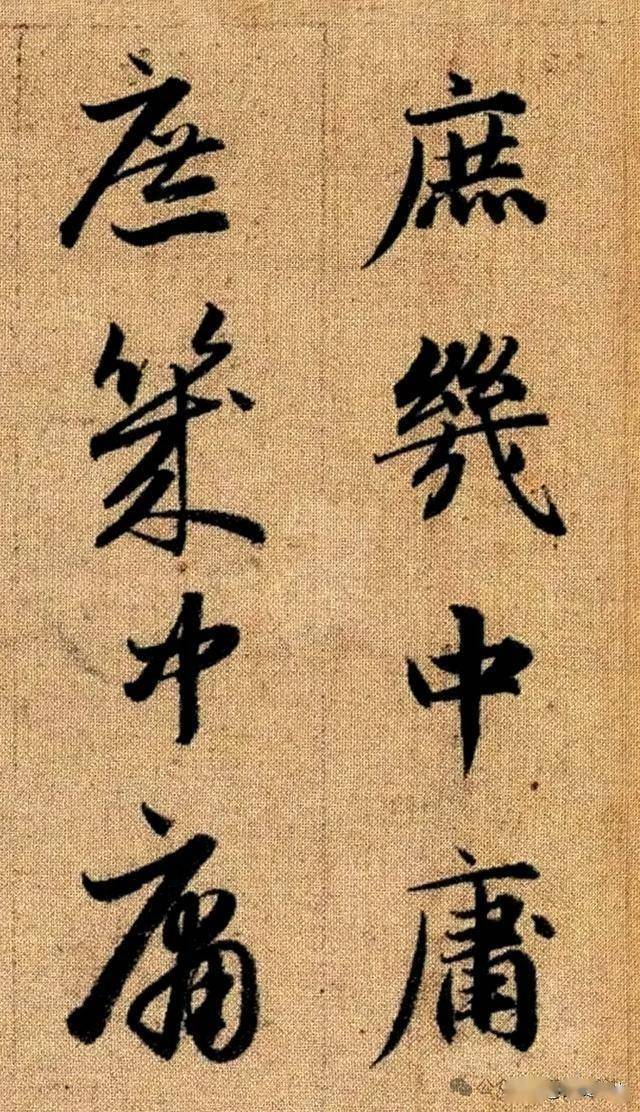 庶幾中庸
庶幾中庸